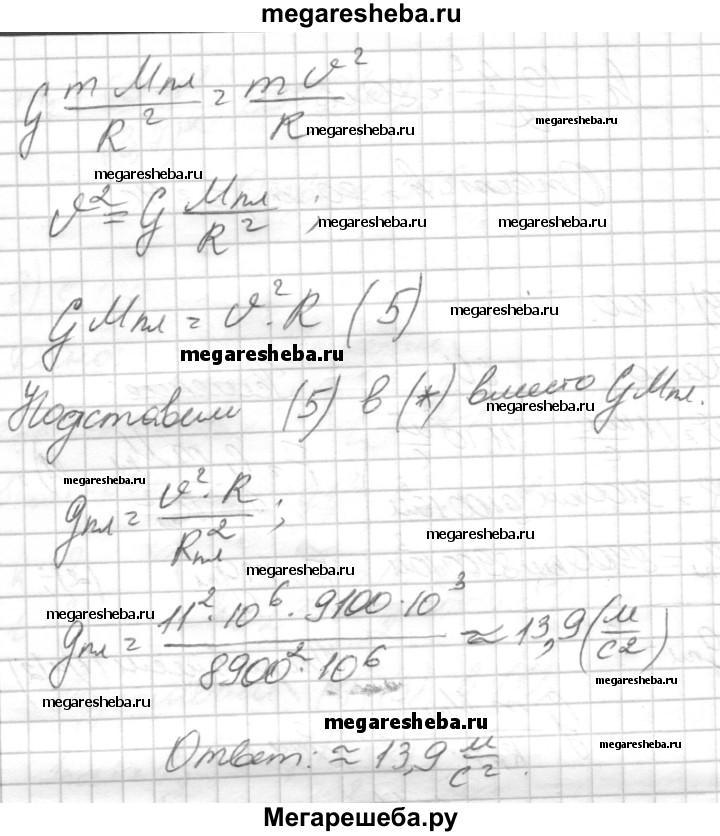 megaresheba.ru
G m Mпл / R² = m υ² / R
megaresheba.ru
megaresheba.ru
megaresheba.ru
υ² = G Mпл / R² ;
megaresheba.ru
megaresheba.ru
G Mпл = υ² · R (5)
megaresheba.ru
megaresheba.ru
Подставим (5) в (*) вместо G Mпл.
megaresheba.ru
megaresheba.ru
gпл = υ² · R / Rпл² ;
megaresheba.ru
megaresheba.ru
megaresheba.ru
gпл = 11² · 10⁶ · 9100 · 10³ / 8900² · 10⁶ ≈ 13,9 (м/с²)
megaresheba.ru
megaresheba.ru
megaresheba.ru
Ответ: ≈ 13,9 м/с².
megaresheba.ru
Мегарешеба.ру